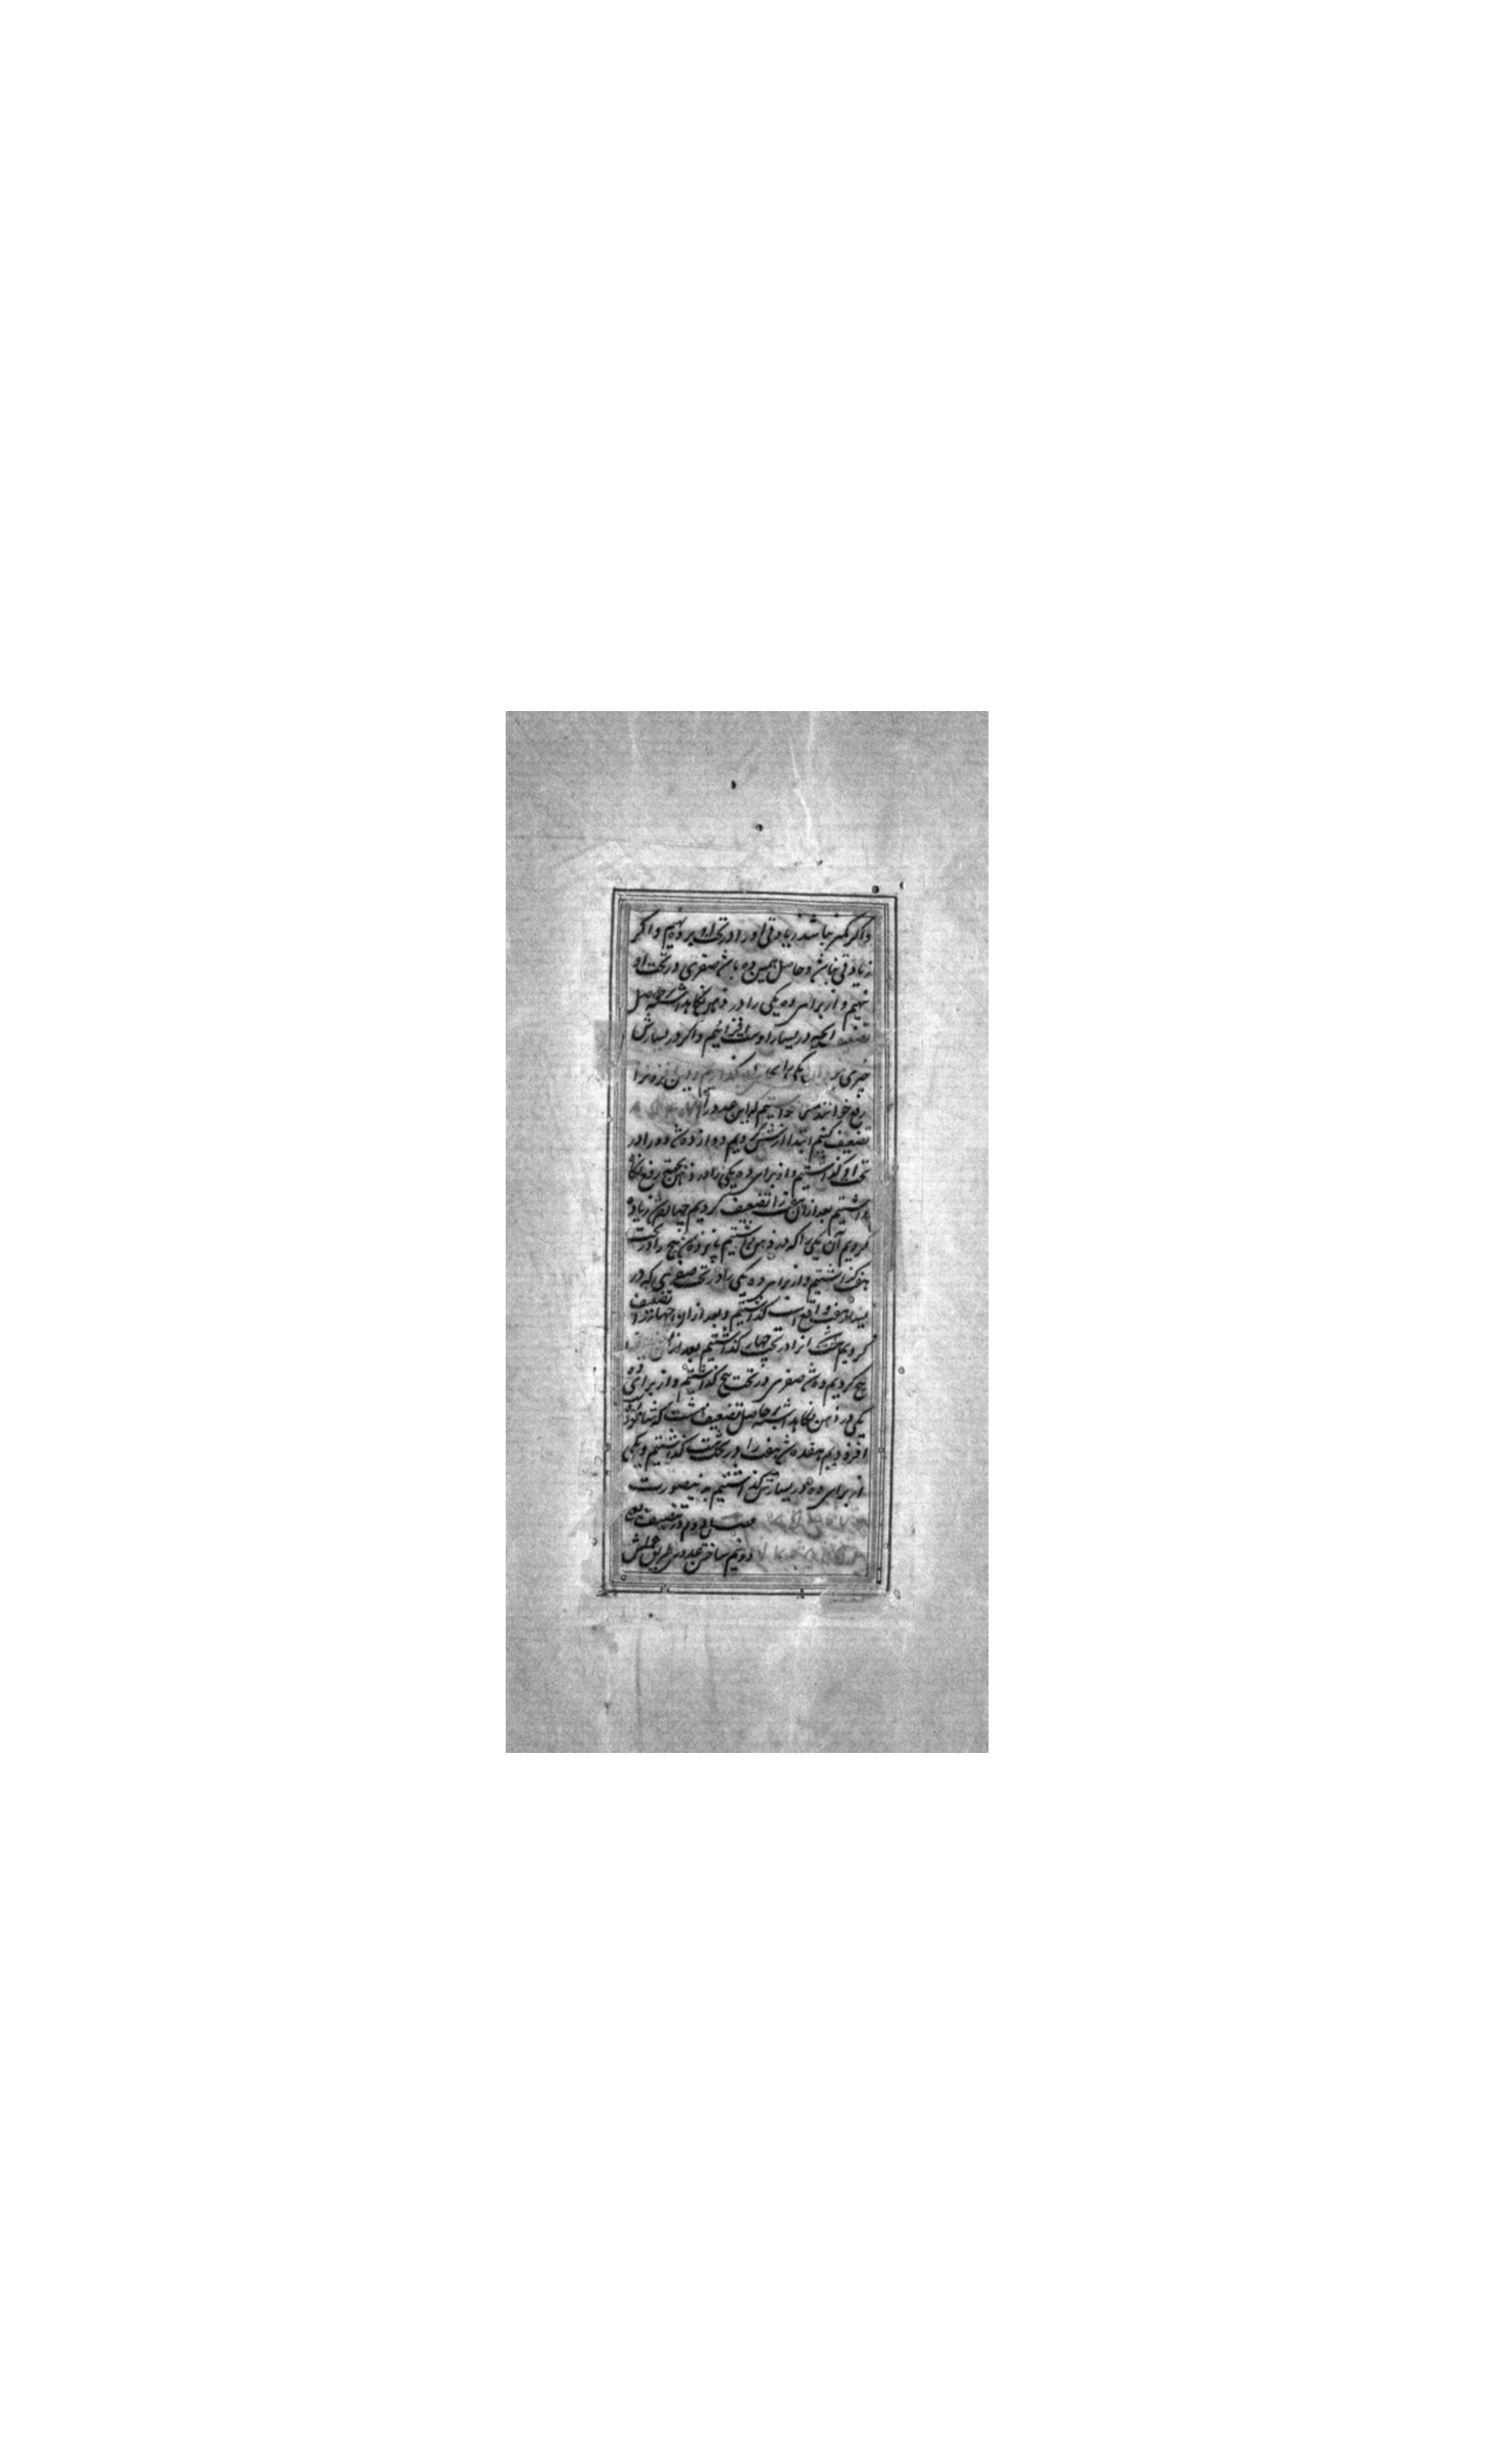 و اگر کمتر نباشد زیادتی او را در تحت او بر ده نهیم و اگر
زیادتی نباشد و حاصل همین ده باشد صفری در تحت او
نهیم و از برای ده یکی را در ذهن نگاهداشته بر حاصل
تضعیف آنچه در یسار اوست افزائیم و اگر در یسارش
چیزی یکی برای گذاریم و این نوع را
رفع خوانند مثلا خواستیم که این عدد را
تضعیف کنیم ابتدا از شش کردیم دوازده شد دو را در
تحت او گذاشتیم و از برای ده یکی را در ذهن بجهت رفع نگاه
داشتیم بعد از آن هفت را تضعیف کردیم چهارده شد زیاده
کردیم آن یکی را که در ذهن داشتیم پانزده شد پنج را در تحت
هفت گذاشتیم و از برای ده یکی را در تحت صفری که در
یسار هفت واقع است گذاشتیم و بعد از آن چهار را تضعیف
کردیم هشت شد آنرا در تحت چهار گذاشتیم بعد از آن
پنج کردیم ده شد صفری در تحت پنج گذاشتیم و از برای ده
یکی در ذهن نگاهداشته بر حاصل تضعیف هشت که شانزده
افزودیم هفده شد هفت را در تحت هشت گذاشتیم و یکی
از برای ده در یسارش گذاشتیم بدینصورت
فصل دوم در تنصیف یعنی
دو نیم ساختن عدد طریق عملش